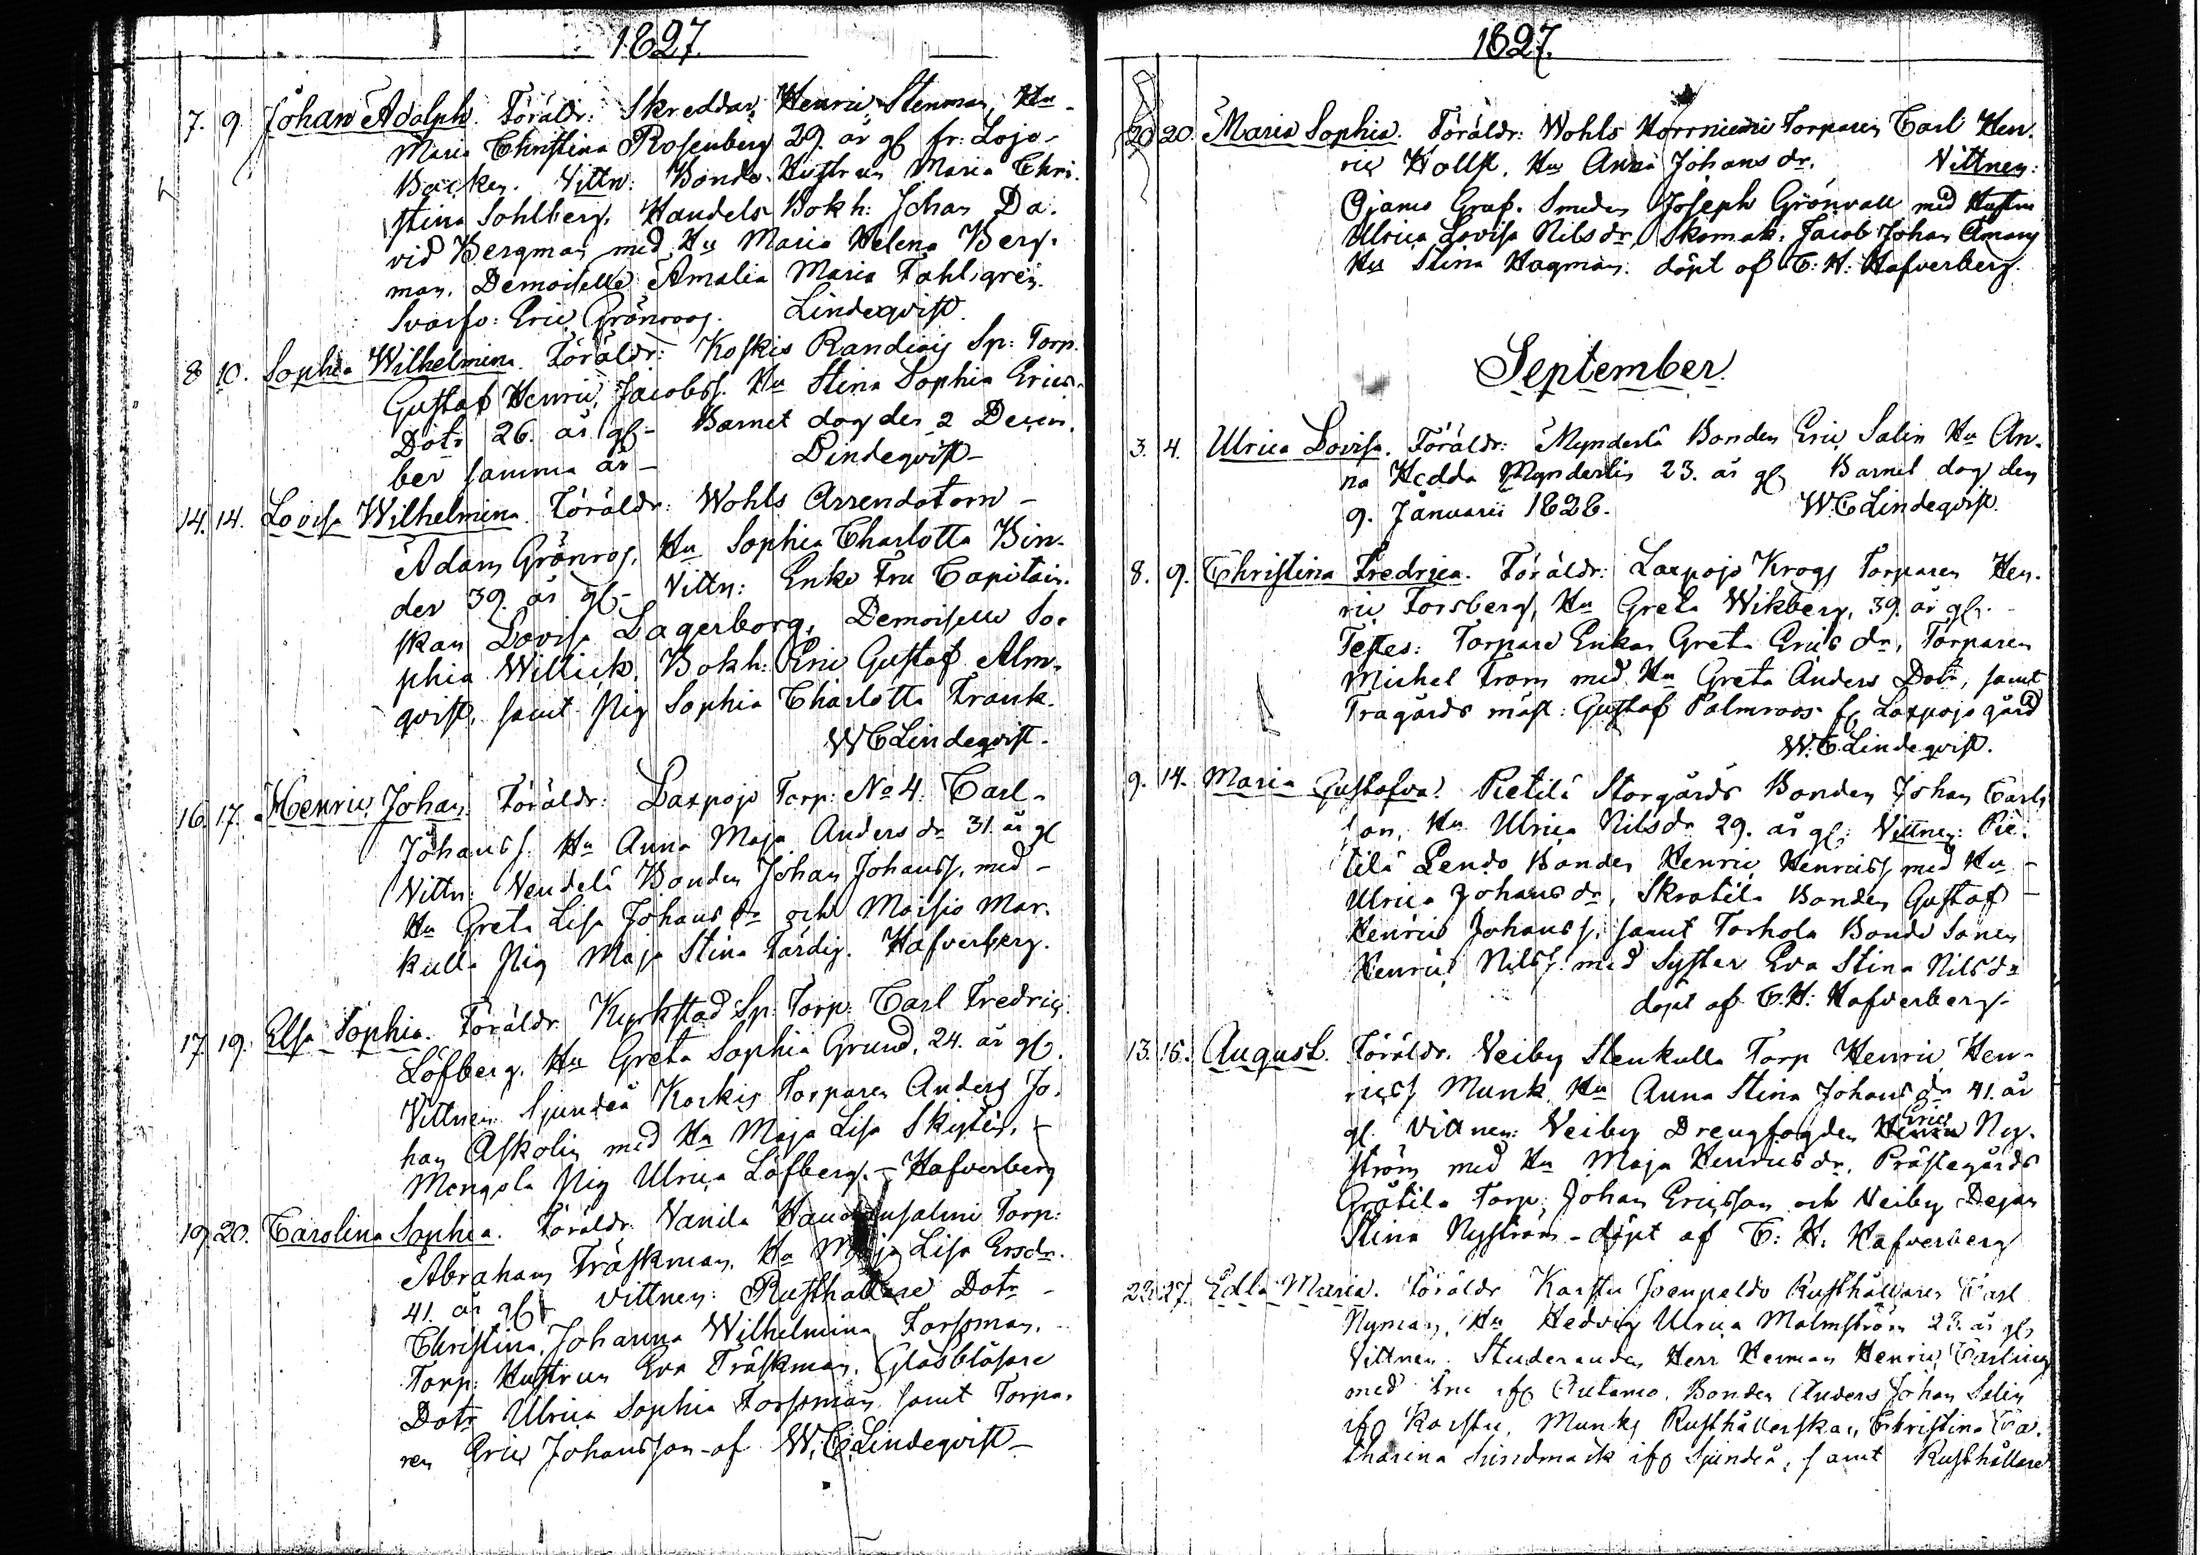 1827.
7. 9 Johan Adolph. Föräldr: Skreddar Henric Stenman, Hu
Maria Christina Rosenberg 29. år gl fr: Lojo-
Backen. Vittn: Bonde Hustrun Maria Chri-
stina Sohlberg. Handels Bokh: Johan Da-
vid Bergman med Hu Maria Helena Berg-
man. Demoiselle Amalia Maria Fahlgren.
Svarfv: Eric Grönroos. Lindeqvist.
8 10. Sophia Wilhelmina. Föräldr: Koskis Sp: Torp.
Gustaf Henric Jacobss. Hu Stina Sophia Erics
Dotr 26. år gl- Barnet dog den 2 Decem-
ber samma år- Lindeqvist-
14. 14. Lovisa Wilhelmina. Föräldr: Wohls Arrendatorn-
Adam Grönros, Hu Sophia Charlotta Bin-
der 39. år gl- Vittn: Enke Fru Capitain-
skan Lovisa Lagerborg, Demoiselle So-
phia Willick, Bokh: Eric Gustaf Alm-
qvist, samt Pig Sophia Charlotta Frank.
W C Lindeqvist.
16. 17. Henric Johan. Föräldr: Laxpojo Torp: No 4. Carl-
Johanss. Hu Anna Maja Anders dr 31. år gl
Vittn: Vendelä Bonden Johan Johanss. med-
Hu Greta Lisa Johans dr och Moisio Mar-
kulla Pig Maja Stina Färdig. Hafverberg.
17. 19. Elsa Sophia. Föräldr Kyrkstad Sp: Torp: Carl Fredric
Löfberg. Hu Greta Sophia Grund, 24. år gl.
Vittnen Sjundeå Koskis Torparen Anders Jo-
han Askolin med Hu Maja Lisa
Mongola Pig Ulrica Löfberg.- Hafverberg
19. 20. Carolina Sophia. Föräldr: Vanila Torp:
Abraham Träskman, Hu Maja Lisa Ersdr.
41. år gl. vittnen: Rusthållare Dotr-
Christina Johanna Wilhelmina Forssman.
Torp: Hustrun Eva Träskman. Glasblåsare
Dotr Ulrica Sophia Forssman samt Torpa-
ren Eric Johansson-af W. C. Lindeqvist-
1827.
20 20. Maria Sophia. Föräldr: Wohls Torparen Carl Hen-
ric Hollst. Hu Anna Johans dr. Vittnen:
Ojamo Gruf. Smeden Joseph Grönvall med Hustru
Ulrica Lovisa Nils dr, Skomak: Jacob Johan
Hu Stina Hagman. döpt af C: H: Hafverberg.
September.
3. 4. Ulrica Lovisa. Föräldr: Mynderlä Bonden Eric Salin Hu An-
na Hedda Mynderlin 23. år gl Barnet dog den
9. Januarii 1828. W. C Lindeqvist.
8. 9. Christina Fredrica. Föräldr: Laxpojo Krogs Torparen Hen-
ric Forsberg, Hu Greta Wikberg, 39. år gl.
Testes: Torpare Enkan Greta Erics dr, Torparen
Michel From med Hu Greta Anders Dotr, samt
Trägårds mäst: Gustaf Palmroos fr Laxpojo gård
W. C. Lindeqvist.
9. 14. Maria Gustafva. Pietilä Storgårds Bonden Johan Carls
son, Hu Ulrica Nilsdr 29. år gl: Vittnen: Pie-
tilä Bonden Henric Henricss med Hu-
Ulrica Johans dr, Skratila Bonden Gustaf-
Henric Johanss, samt Torhola Bonde Sonen
Henric Nilss. med Syster Eva Stina Nilsdr
döpt af C. H: Hafverberg.
13. 15. August. Föräldr. Veiby Stenkulla Torp Henric Hen-
ricss Munk Hu Anna Stina Johans dr 41. år
gl. Vittnen: Veiby Drengfogden Eric Ny-
ström med Hu Maja Henrics dr. Prästegårds
Grötila Torp: Johan Ericsson och Veiby Dejan
Stina Nyström- döpt af C: H. Hafverberg
22. 27. Edla Maria. Föräldr Karstu Rusthållaren Carl
Nyman, Hu Hedvig Ulrica Malmström 23. år gl
Vittnen. Studeranden Herr Herman Henric
med fru ifr Outamo, Bonden Anders Johan Selin
ifr Karstu, Munks Rusthållerskan Christina Ca-
tharina Sundmark ifr Sjundeå, samt Rusthållare